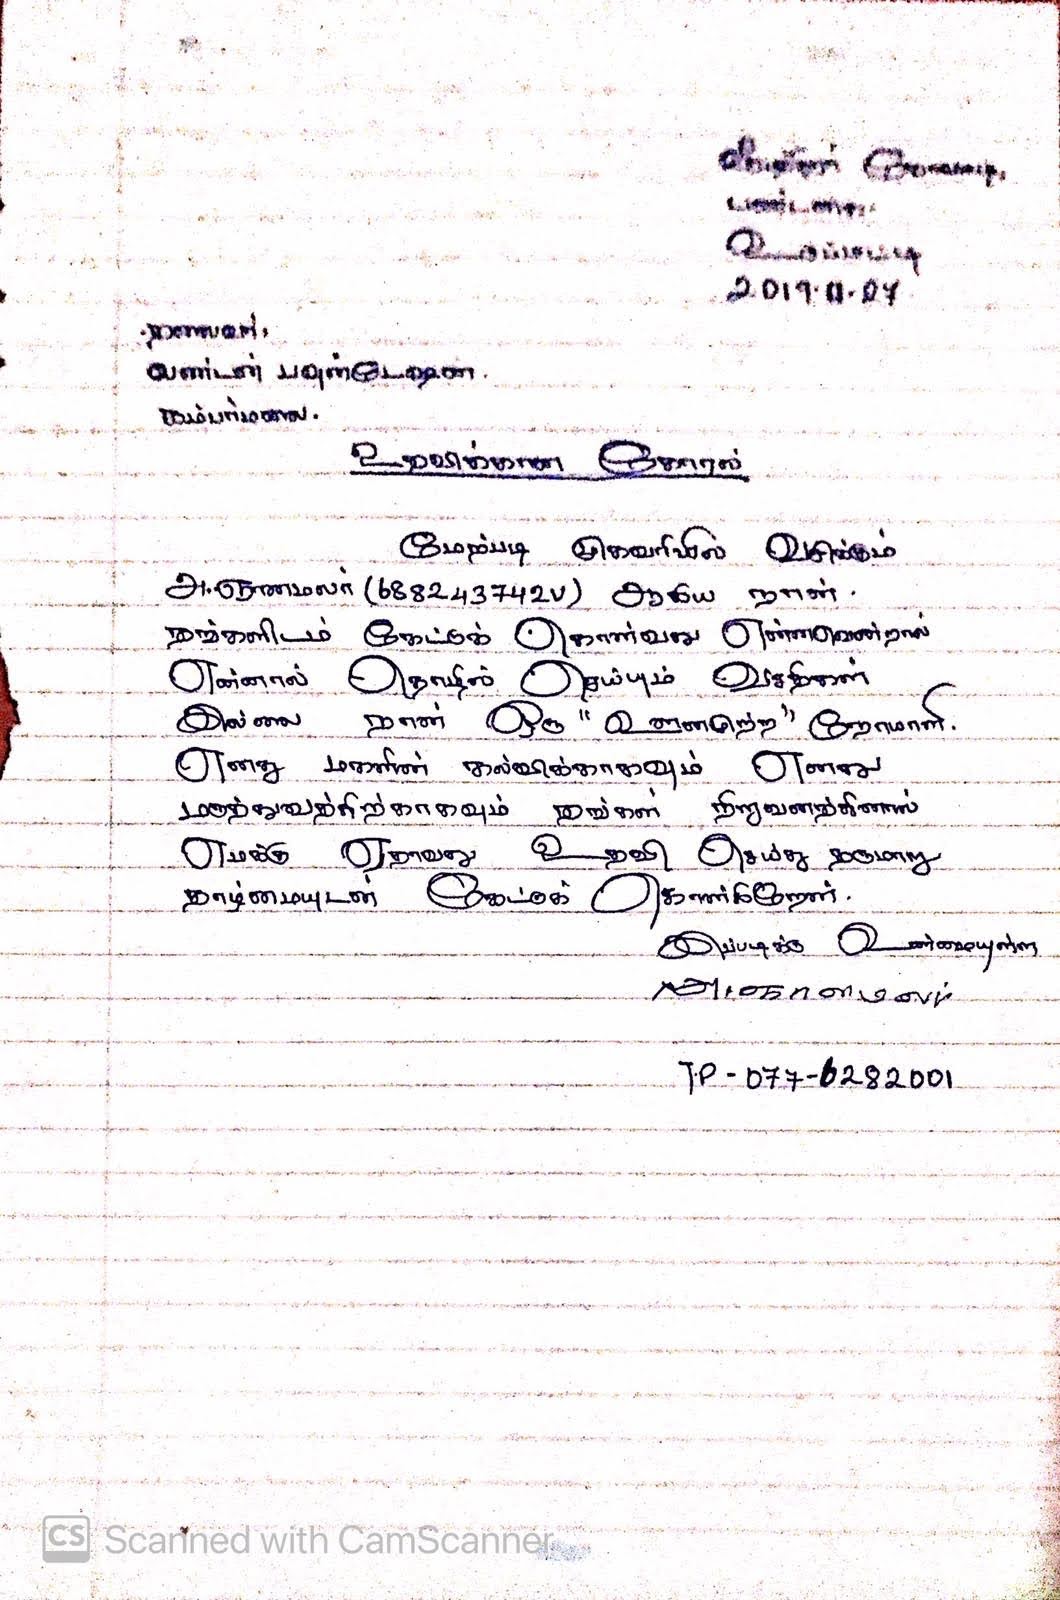 பண்டகை.
உடுப்பிட்டி
2019.11.27
தலைவர்,
லண்டன் பவுன்டேஷன்.
கம்பர்மலை.
உதவிக்கான கோரல்
மேற்படி முகவரியில் வசிக்கும்
அ.ஞானமலர் (688243742V) ஆகிய நான்.
தங்களிடம் கேட்டுக் கொள்வது என்னவென்றால்
என்னால் தொழில் செய்யும் வசதிகள்
இல்லை நான் ஒரு "ஊனமுற்ற" நோயாளி.
எனது மகளின் கல்விக்காகவும் எனது
மருத்துவத்திற்காகவும் தங்கள் நிறுவனத்தினால்
எமக்கு ஏதாவது உதவி செய்து தருமாறு
தாழ்மையுடன் கேட்டுக் கொள்கிறேன்.
இப்படிக்கு உண்மையுள்ள
அ.ஞானமலர்
T.P - 077-6282001
CS Scanned with CamScanner